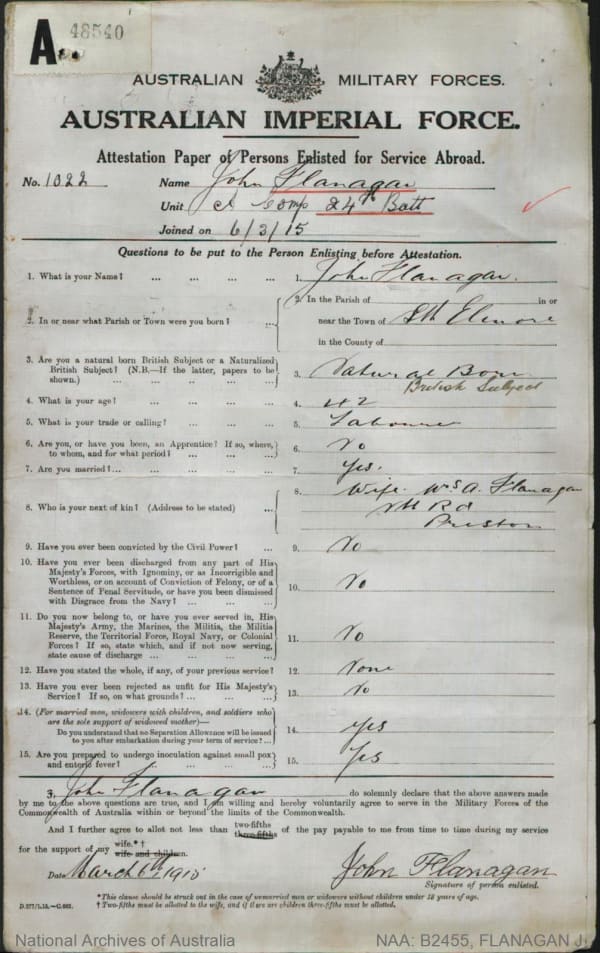 A.
48540
AUSTRALIAN MILITARY FORCES.
AUSTRALIAN IMPERIAL FORCE.
Attestation Paper of Persons Enlisted for Service Abroad.
No. 1022 Name John Flanagan
Unit A Comp 24th Batt
Joined on 6/3/15
Questions to be put to the Person Enlisting before Attestation.
1. What is your Name? ... ... ... ... 1. John Flanagan.
2. In or near what Parish or Town were you born? ... 2. In the Parish of in or
near the Town of Sth Elmore
in the County of
3. Are you a natural born British Subject or a Naturalized
British Subject? (N.B.—If the latter, papers to be
shown.) ... ... ... ... 3. Natural Born
British Subject
4. What is your age? ... ... ... ... 4. 42
5. What is your trade or calling? ... ... ... 5. Labourer
6. Are you, or have you been, an Apprentice? If so, where,
to whom, and for what period? ... ... ... 6. No
7. Are you married? ... ... ... ... 7. Yes.
8. Who is your next of kin? (Address to be stated) ... 8. Wife. Mrs A. Flanagan
Rd
Preston
9. Have you ever been convicted by the Civil Power? ... 9. No
10. Have you ever been discharged from any part of His
Majesty's Forces, with Ignominy, or as Incorrigible and
Worthless, or on account of Conviction of Felony, or of a
Sentence of Penal Servitude, or have you been dismissed
with Disgrace from the Navy? ... ... ... 10. No
11. Do you now belong to, or have you ever served in, His
Majesty's Army, the Marines, the Militia, the Militia
Reserve, the Territorial Force, Royal Navy, or Colonial
Forces? If so, state which, and if not now serving,
state cause of discharge ... ... ... 11. No
12. Have you stated the whole, if any, of your previous service? 12. None
13. Have you ever been rejected as unfit for His Majesty's
Service? If so, on what grounds? ... ... ... 13. No
14. (For married men, widowers with children, and soldiers who
are the sole support of widowed mother)—
Do you understand that no Separation Allowance will be issued
to you after embarkation during your term of service? ... 14. yes
15. Are you prepared to undergo inoculation against small pox
and enteric fever? ... ... ... ... 15. Yes
I, John Flanagan do solemnly declare that the above answers made
by me to the above questions are true, and I am willing and hereby voluntarily agree to serve in the Military Forces of the
Commonwealth of Australia within or beyond the limits of the Commonwealth.
And I further agree to allot not less than two-fifths three-fifths of the pay payable to me from time to time during my service
for the support of my wife.*† wife and children.
Date March 6th 1915 John Flanagan
Signature of person enlisted.
*This clause should be struck out in the case of unmarried men or widowers without children under 18 years of age.
D.277/1.15.—C.602. † Two-fifths must be allotted to the wife, and if there are children three-fifths must be allotted.
National Archives of Australia NAA: B2455, FLANAGAN J